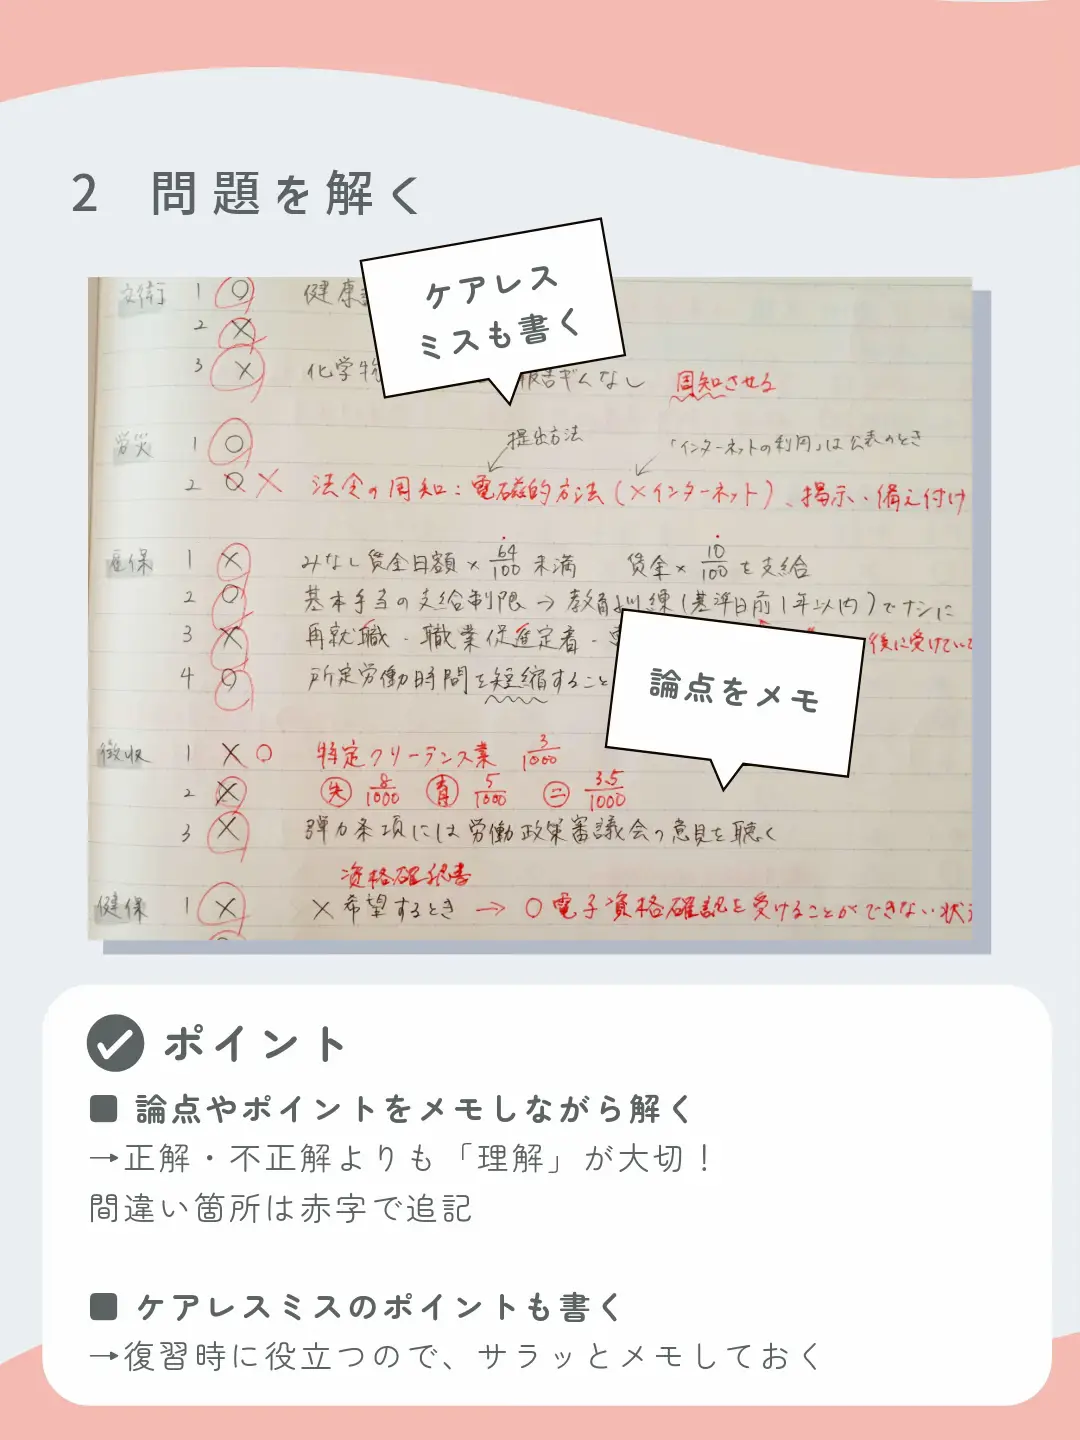 2 問題を解く
ケアレス
ミスも書く
安衛 1 ○ 健康
2 ×
3 × 化学物 報告ギムなし 周知させる
提出方法 「インターネットの利用」は公表のとき
労災 1 ○
2 ○ × 法令の周知:電磁的方法(×インターネット)、掲示・備え付け
雇保 1 × みなし賃金日額×64/100未満 賃金×10/100を支給
2 ○ 基本手当の支給制限→教育訓練(基準日前1年以内)でナシに
3 × 再就職・職業促進定着・ 後に受けてい
4 ○ 所定労働時間を短縮すること
論点をメモ
徴収 1 × ○ 特定クリーニング業 3/1000
2 × 失 8/1000 育 5/1000 二 3.5/1000
3 × 弾力条項には労働政策審議会の意見を聴く
資格確認書
健保 1 × ×希望するとき→○電子資格確認を受けることができない状
ポイント
■ 論点やポイントをメモしながら解く
→正解・不正解よりも「理解」が大切！
間違い箇所は赤字で追記
■ ケアレスミスのポイントも書く
→復習時に役立つので、サラッとメモしておく